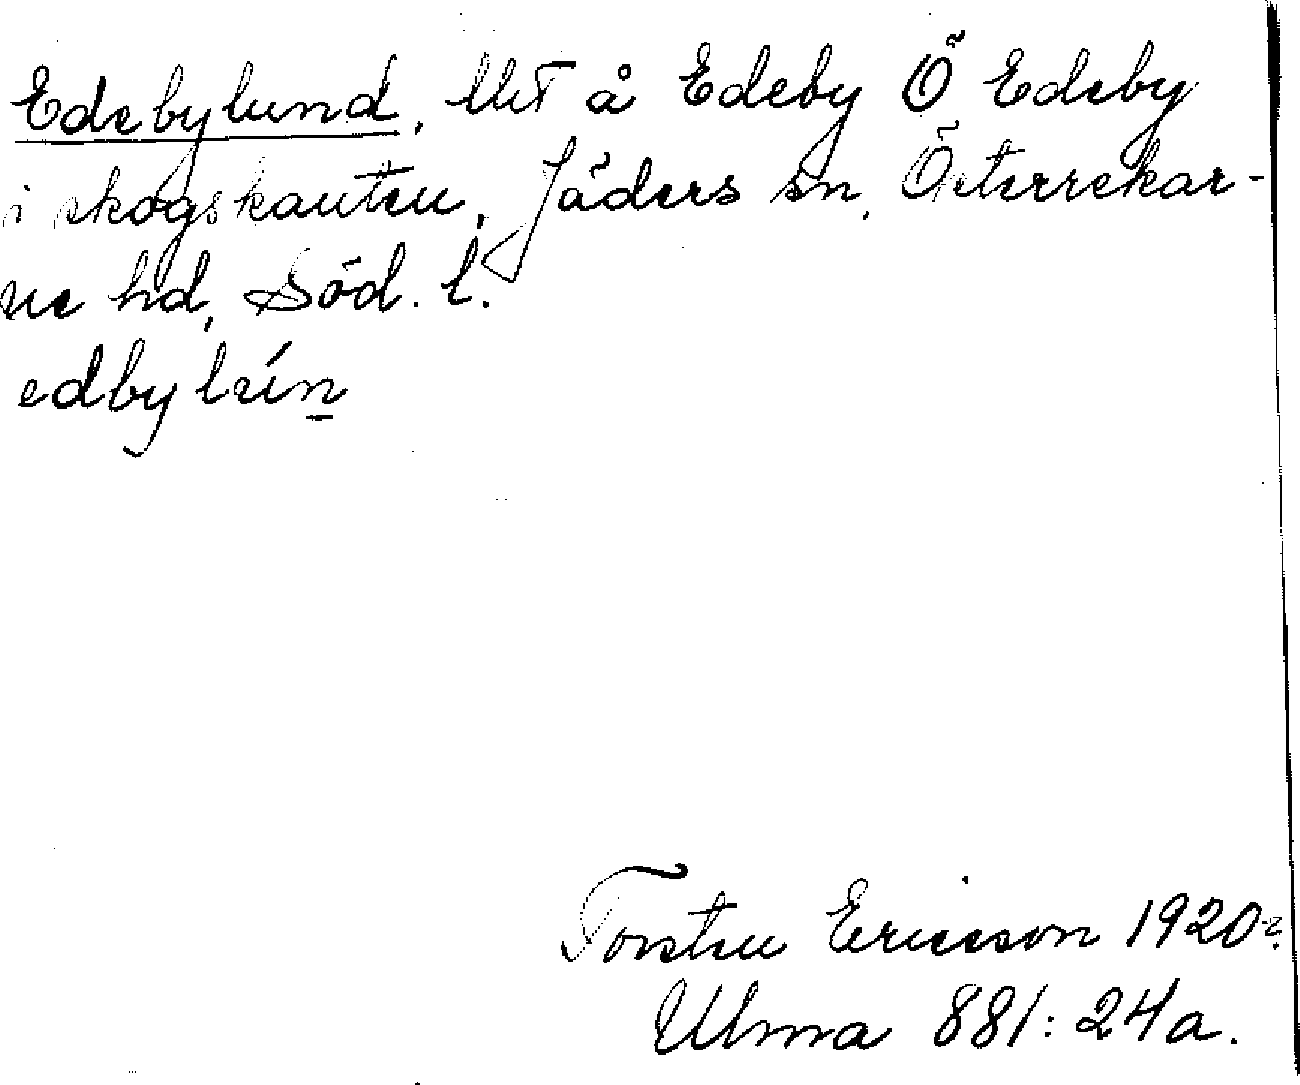 Edebylund, lht å Edeby Ö Edeby
i skogskanten, Jäders sn, Österrekar-
ne hd, Söd. l.
edbylún
Torsten Ericsson 1920-
Ulma 881: 24a.